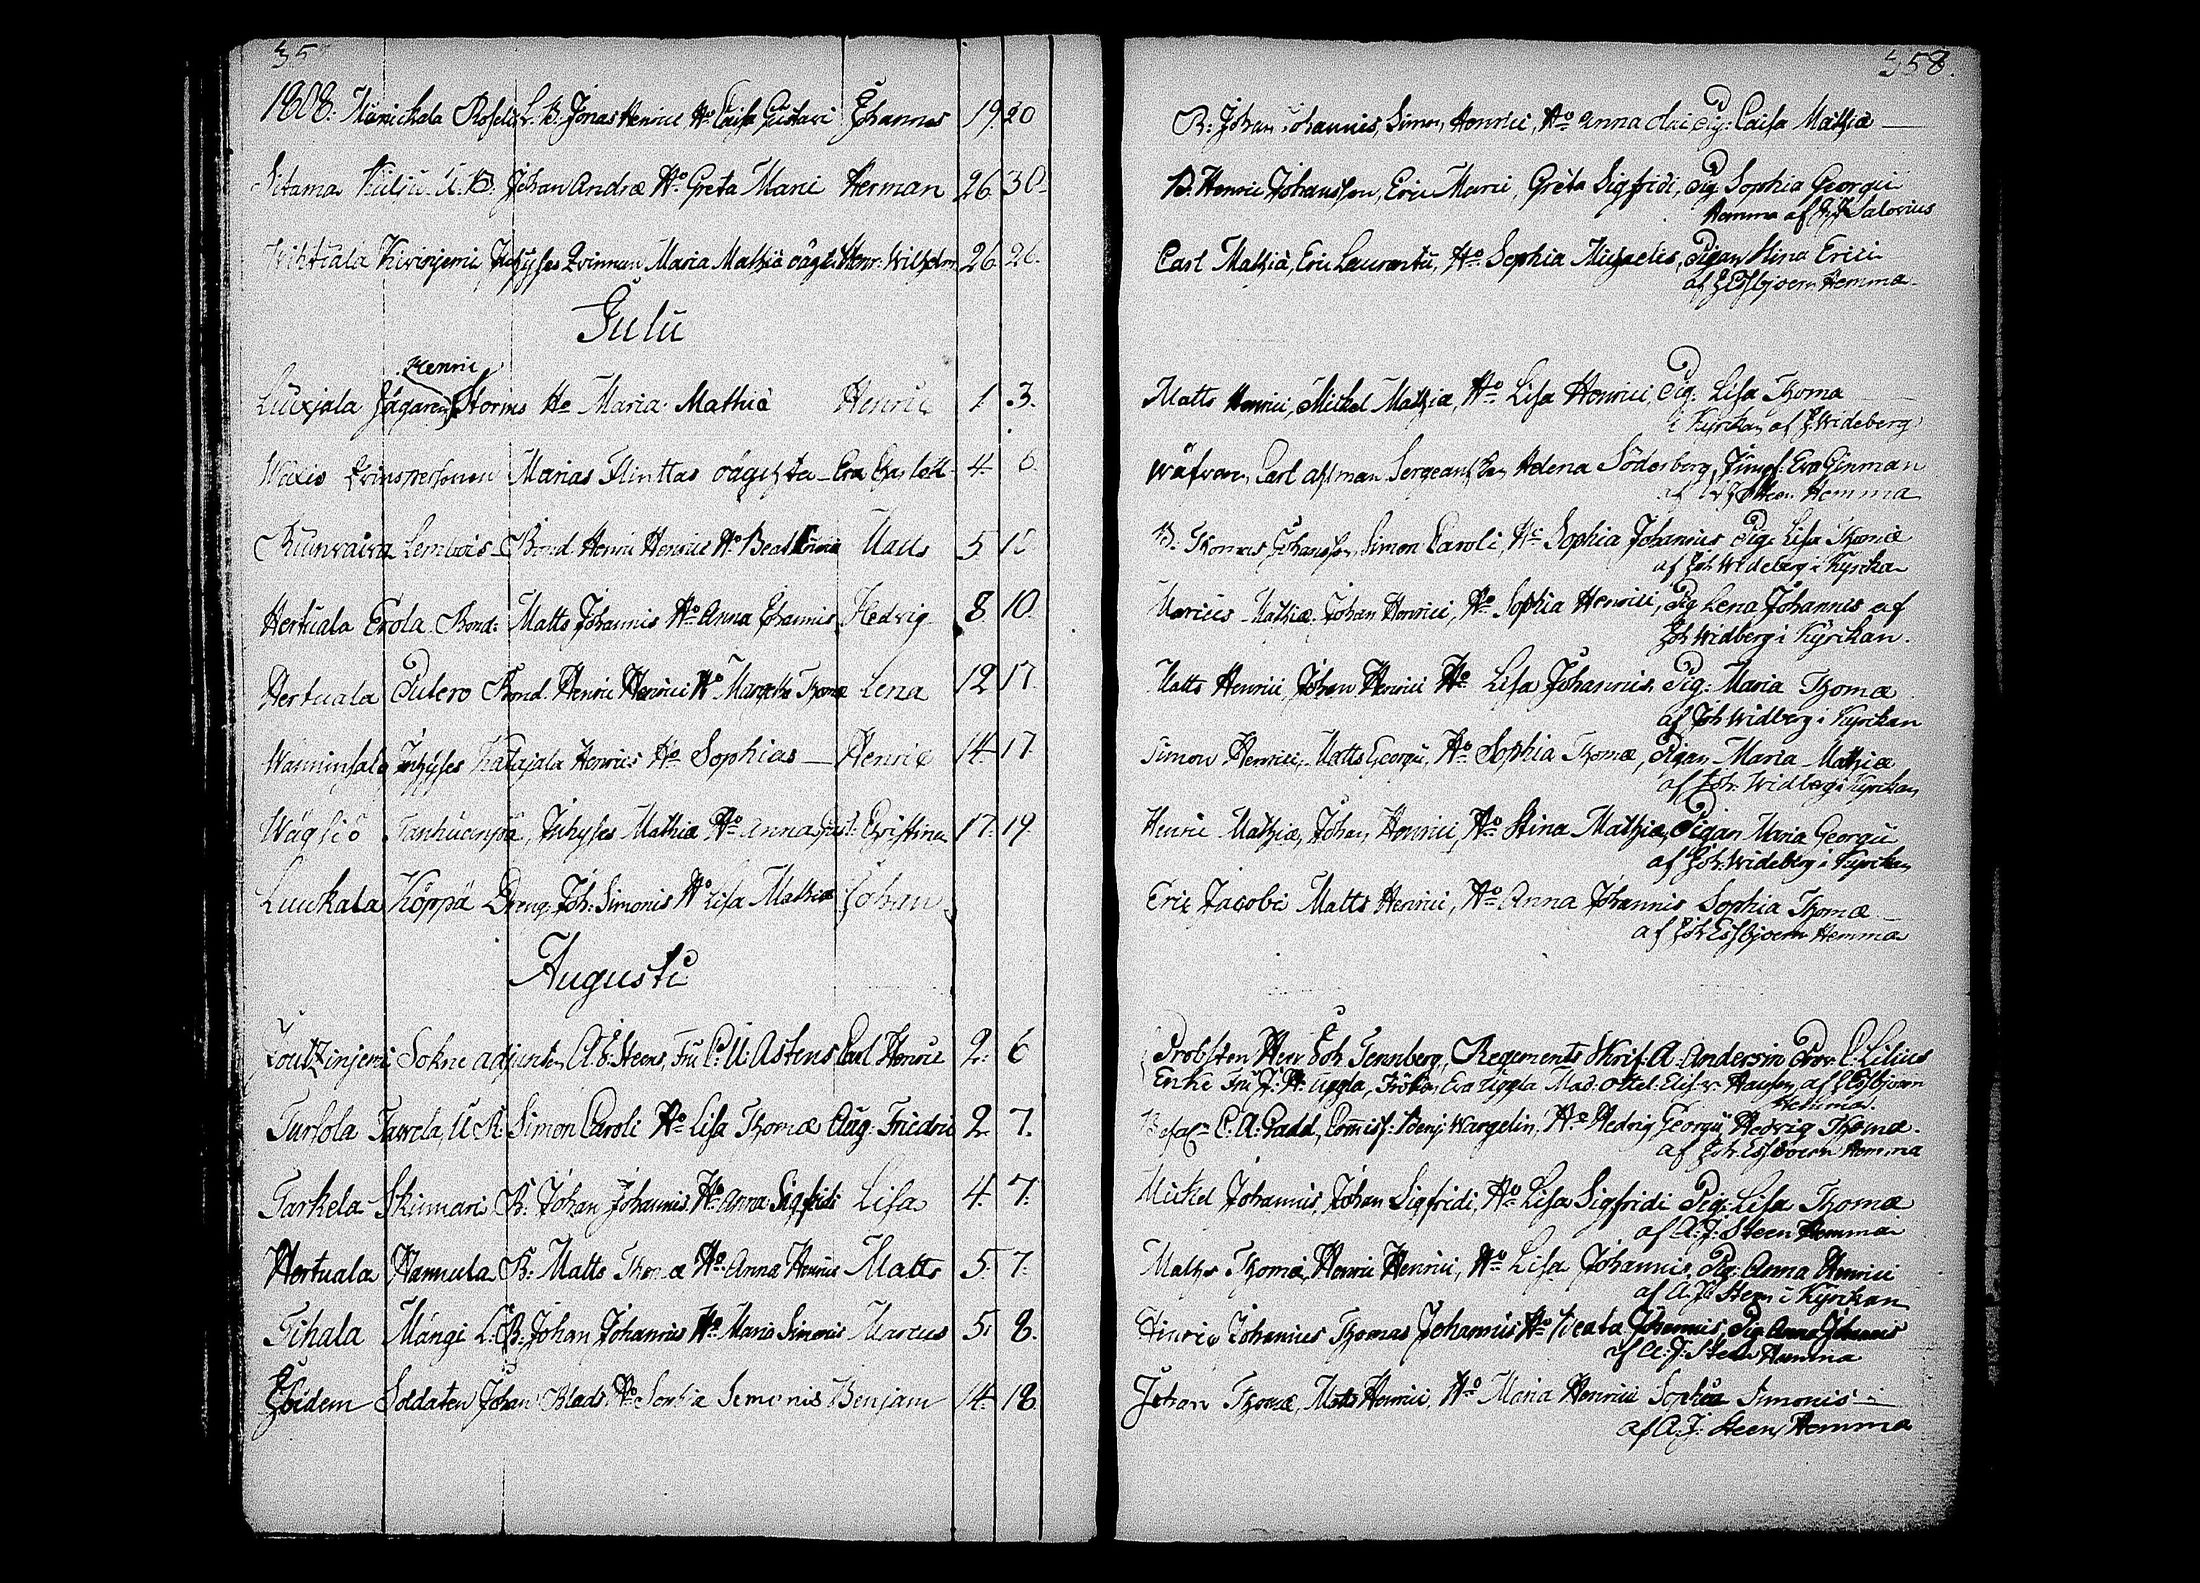 35
1808. Munickala Rofelt L. B. Jonas Henrici Ho Caisa Gustavi Johannes 19. 20
Sutama Kulju U. B. Johan Andræ Ho Greta Marci Herman 26 30.
Kivinjemi Inhyses Qvinnan Maria Mathiæ oägta Henr: Wilhelm 26 26.
Julii
Henric
Luxjala Jägaren Storms Ho Maria Mathiæ Henric 1. 3.
Qvinspersonen Marias Flinttas oägta Eva Charlott 4. 6.
Lembois Bond. Henric Henrici Ho Beat Matts 5
Hertuala Erola Bond: Matts Johannis Ho Anna Johannis Hedvig 8 10.
Hertuala Putero Bond. Henric Henrici Ho Margetha Thomæ Lena 12 17.
Wäninsalo Inhyses Katajala Henrici Ho Sophias Henric 14. 17
Wägliö Tanhuanpä, Inhyses Mathiæ Ho Anna Christina 17. 19.
Luukala Köppä Dreng. Joh: Simonis Ho Lisa Mathiæ Johan
Augusti
Sokne adjuncten A. J. Steens, Fru C. U. Astens Carl Henric 2. 6
Tursola Tawela, U. B. Simon Caroli Ho Lisa Thomæ Aug: Friedric 2. 7.
Tarkela Skinnari B. Johan Johannis Ho Anna Sigfridi Lisa 4. 7.
Hertuala Hannula B: Matts Thomæ Ho Anna Henrici Matts 5. 7.
Tihala Mángi L: B: Johan Johannis Ho Maria Simonis Marcus 5. 8.
Ibidem Soldaten Johan Blads Ho Sophia Simonis Benjam 14. 18.
358.
B. Johan Johannis, Simon Henrici, Ho Anna Olai Pig: Caisa Mathiæ
B. Henric Johansson, Eric Marci, Greta Sigfridi, Pig Sophia Georgii
Hemma af Salovius
Carl Mathiæ, Eric Laurentii, Ho Sophia Michaelis, Pigan Stina Erici
af J Essbjoern Hemma
Matts Henrici, Mickel Mathiæ, Ho Lisa Henrici, Pig: Lisa Thomæ
i Kyrkan af J Wideberg
Carl Ahlman Sergeant Helena Söderberg, Jungf: Eva Ginman
af Steen Hemma
B. Thomas Johansson, Simon Caroli, Ho Sophia Johannis Pig: Lisa Thomæ
af Joh Wideberg i Kyrkan
Marcus Mathiæ. Johan Henrici, Ho Sophia Henrici, Pig Lena Johannis af
Joh Widberg i Kyrkan.
Matts Henrici, Johan Henrici Ho Lisa Johannis, Pig: Maria Thomæ
af Joh Widberg i Kyrkan
Simon Henrici, Matts Georgii, Ho Sophia Thomæ, Pigan Maria Mathiæ
af Joh: Widberg i Kyrkan
Henric Mathiæ, Johan Henrici, Ho Stina Mathiæ, Pigan Maria Georgii
af Joh: Wideberg i Kyrkan
Eric Jacobi Matts Henrici, Ho Anna Johannis Sophia Thomæ
af Joh Essbjoern Hemma
Probsten Herr Joh Tennberg, Regements Skrif. A. Andersin Prov: C. Lilius
Enke Fru J: H: Uggla, Fröken Eva Uggla Mad: Ottel: Elis: v. Hausen, af J Essbjoern
Hemma.
C. A: Gadd, Commiss: Benj: Wargelin, Ho Hedvig Georgii Hedvig Thomæ.
af Joh. Essbjoern Hemma
Mickel Johannis, Johan Sigfridi, Ho Lisa Sigfridi Pig: Lisa Thomæ
af A: J: Steen Hemma
Mathes Thomæ, Henric Henrici, Ho Lisa Johannis, Pig: Anna Henrici
af A. J: Steen i Kyrkan
Hinric Johannis Thomas Johannis Ho Beata Johannis, Pig: Anna Johannis
af A: J: Steen Hemma
Johan Thomæ, Matts Henrici, Ho Maria Henrici Sophia Simonis
af A: J: Steen Hemma